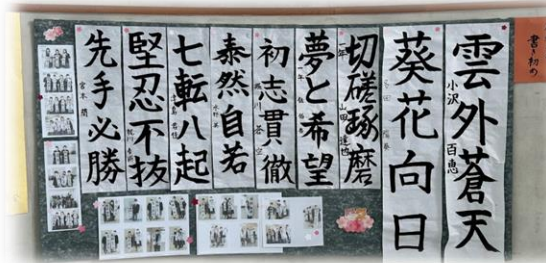 書き初め
雲外蒼天
小沢 百恵
葵花向日
切磋琢磨
一年 山田 達也
夢と希望
初志貫徹
泰然自若
七転八起
堅忍不抜
先手必勝